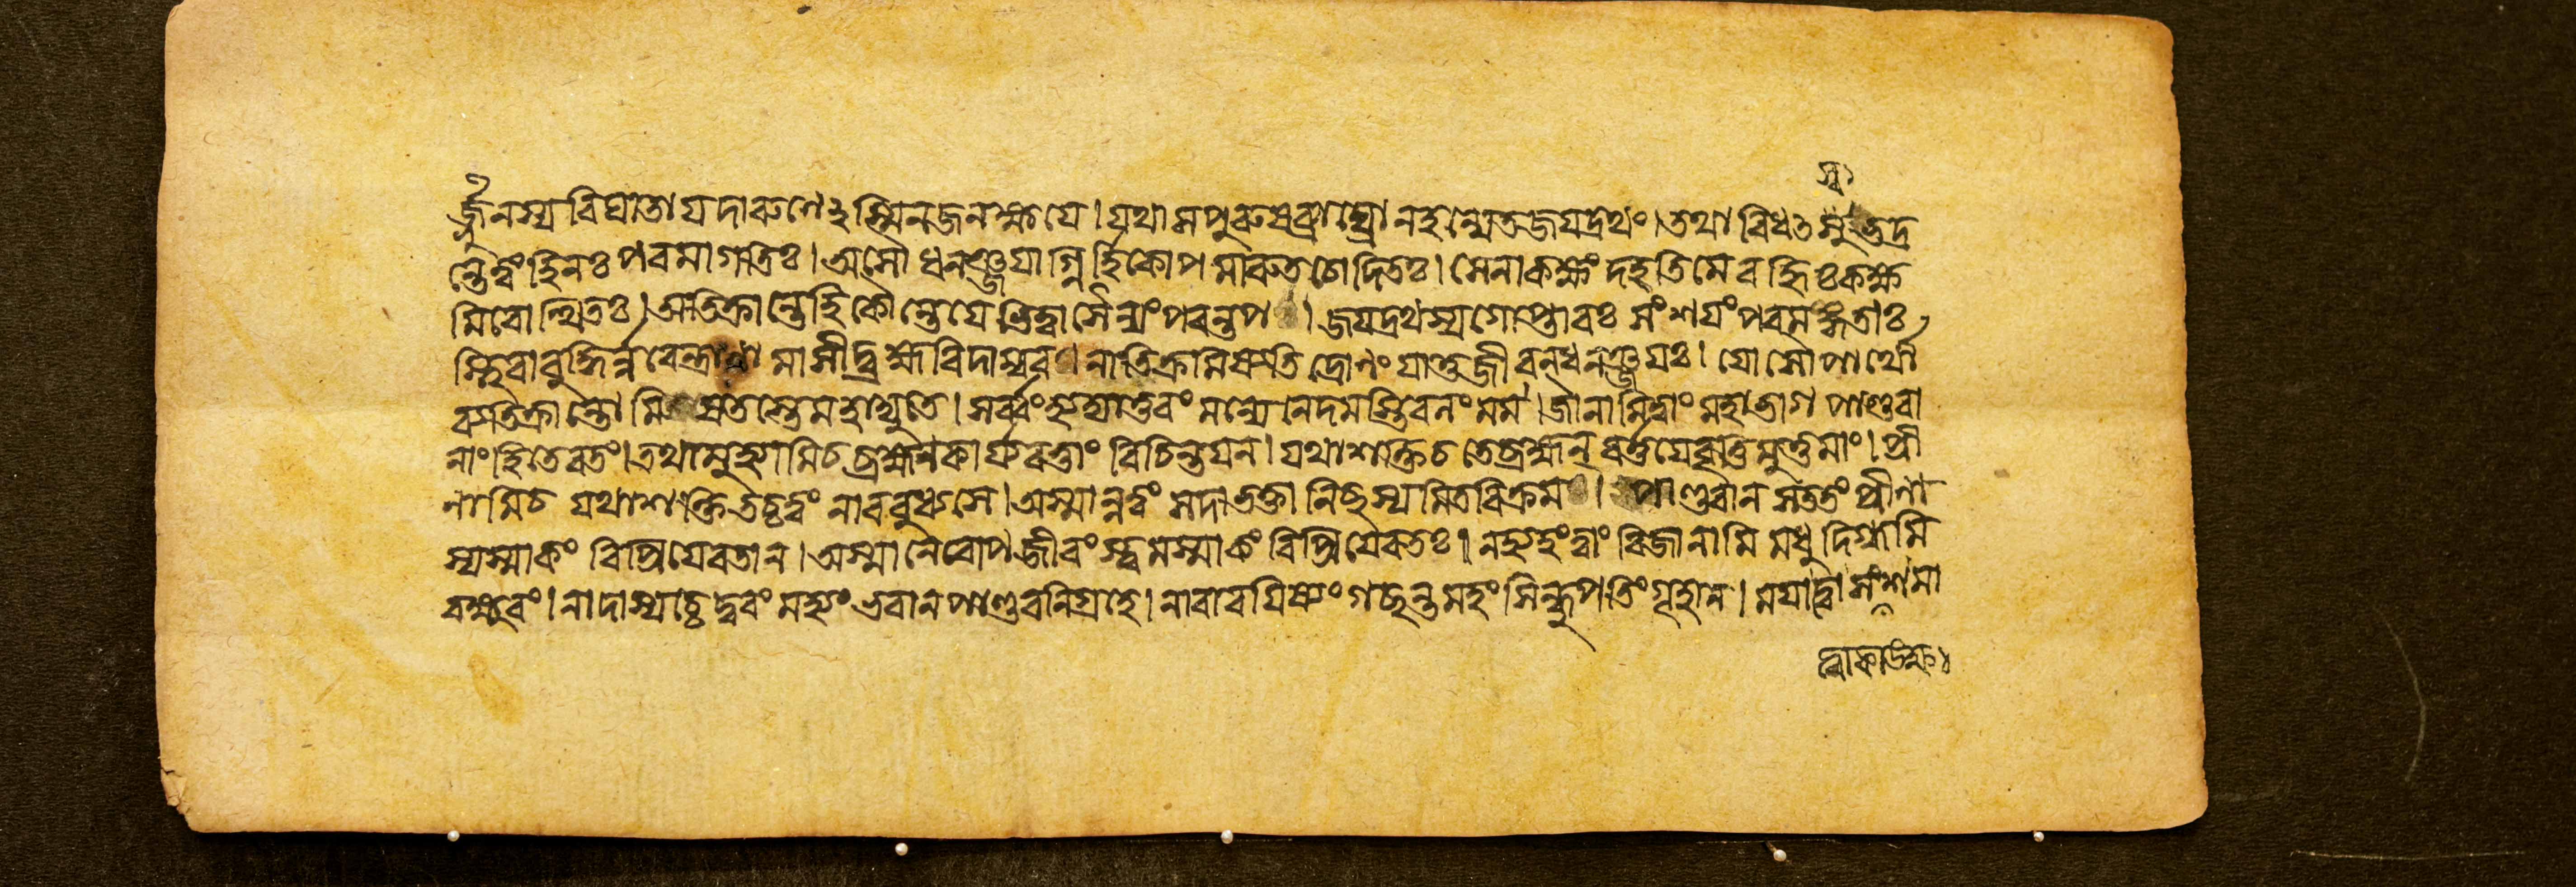 র্জুনস্য বিঘাতায় দারুণেঽস্মিন জনক্ষয়ে। যথা স পুরুষব্যাঘ্রো ন হন্যেত জয়দ্রথং। তথা বিধৎস্ব ভদ্র
ন্তে ত্বং হি নঃ পরমা গতিঃ। অসৌ ধনঞ্জয়াগ্নির্হি কোপমারুতচোদিতঃ। সেনাকক্ষং দহতি মে বহ্নিঃ কক্ষ
মিবোত্থিতঃ। অতিক্রান্তে হি কৌন্তেয়ে ভিত্ত্বা সৈন্যং পরন্তপ। জয়দ্রথস্য গোপ্তারঃ সংশয়ং পরমঙ্গতাঃ
স্থিরা বুদ্ধির্ন্নরেন্দ্রাণামাসীদ্ব্রহ্মবিদাম্বর। নাতিক্রমিষ্যতি দ্রোণং যাতু জীবন্ ধনঞ্জয়ঃ। যোসৌ পার্থো
ব্যতিক্রান্তো মিষতস্তে মহাদ্যুতে। সর্ব্বং হ্যদ্যাতুরং মন্যে নেদমস্তি বলং মম। জানামি ত্বাং মহাভাগ পাণ্ডবা
নাং হিতে রতং। তথা মুহ্যামি চ ব্রহ্মন কার্য্যবত্তাং বিচিন্তয়ন। যথাশক্তি চ তে ব্রহ্মন্ বর্ত্তয়ে বৃত্তিমুত্তমাং। প্রী
ণামি চ যথাশক্তি তচ্চ ত্বং নাববুধ্যসে। অস্মান্ন ত্বং সদা ভক্তানিচ্ছস্যমিতবিক্রম। পাণ্ডবান সততং প্রীণা
স্যস্মাকং বিপ্রিয়ে রতান। অস্মানেবোপজীবংস্ত্বমস্মাকং বিপ্রিয়ে রতঃ। ন হ্যহং ত্বাং বিজানামি মধুদিগ্ধমি
ব ক্ষুরং। নাদাস্যচ্চেদ্বরং মহ্যং ভবান পাণ্ডবনিগ্রহে। নাবারয়িষ্যং গচ্ছন্তমহং সিন্ধুপতিং গৃহান। ময়া ত্বাসংশমা